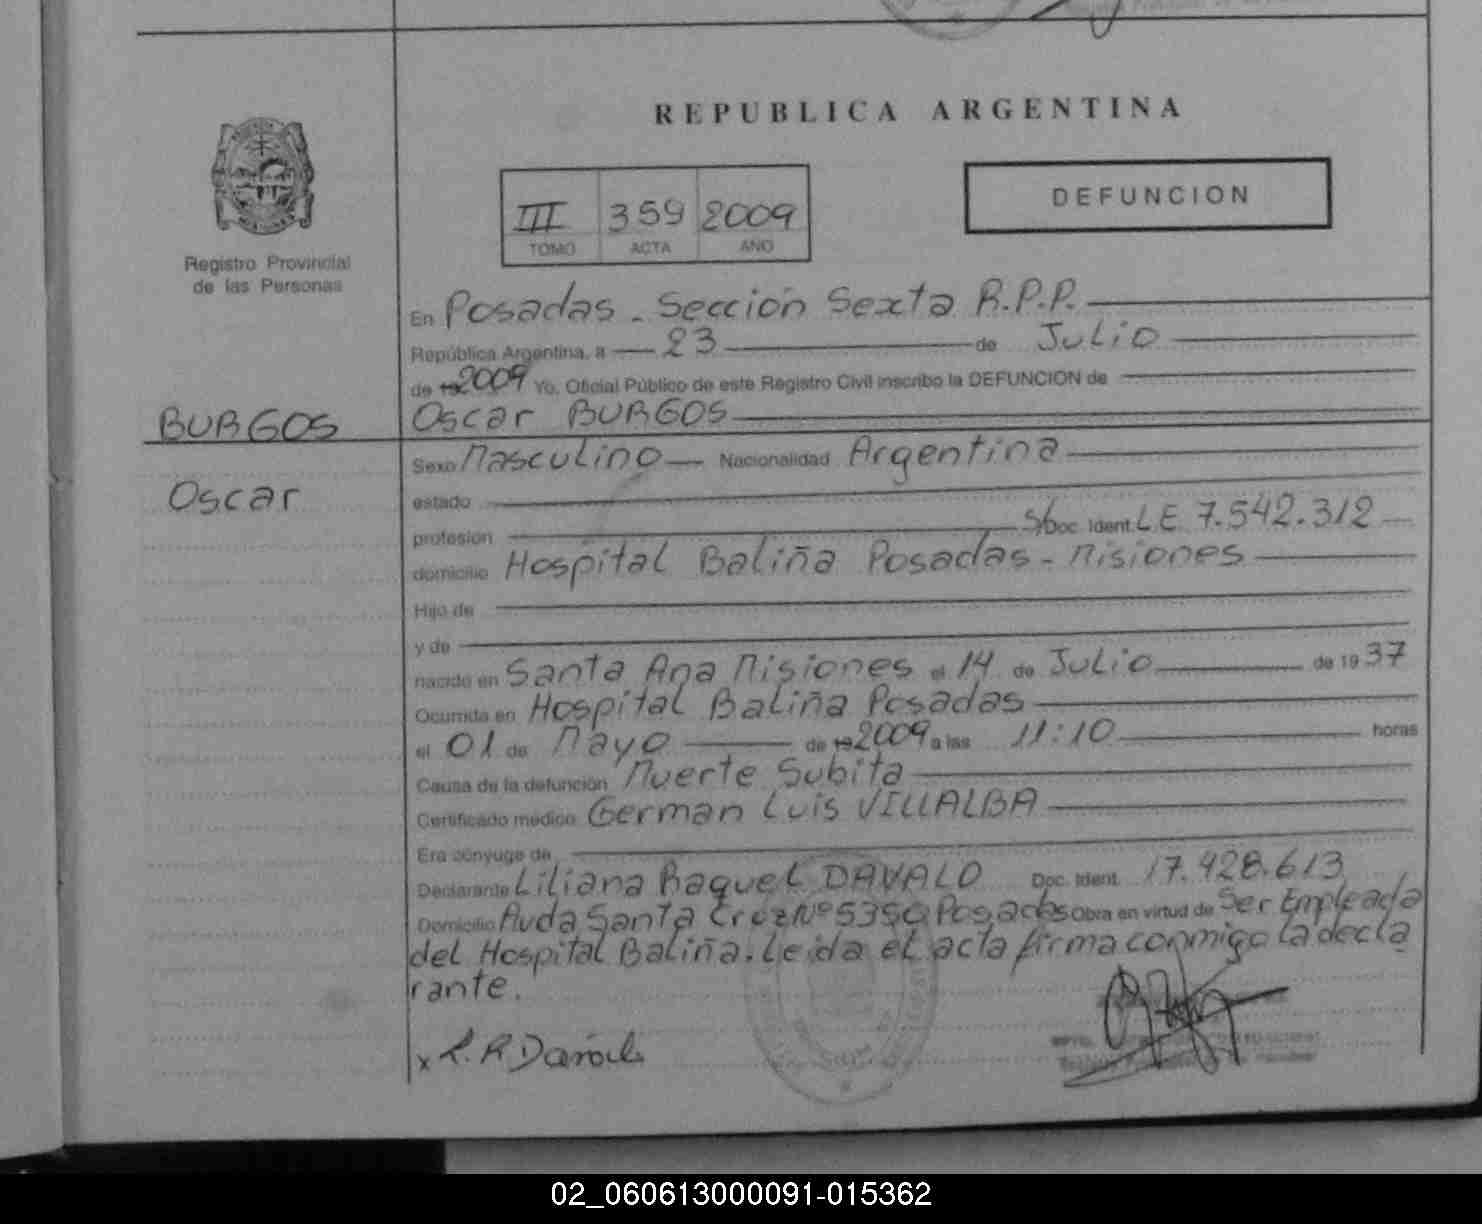 REPUBLICA ARGENTINA
DEFUNCION
III 359 2009
TOMO ACTA AÑO
Registro Provincial
de las Personas
En Posadas - Sección Sexta R.P.P.
República Argentina, a 23 de Julio
de 19 2009 Yo, Oficial Público de este Registro Civil inscribo la DEFUNCION de
BURGOS
Oscar BURGOS
Sexo Masculino Nacionalidad Argentina
Oscar
estado
profesión S/ Doc. Ident. LE 7.542.312
domicilio Hospital Baliña Posadas - Misiones
Hijo de
y de
nacido en Santa Ana Misiones el 14 de Julio de 19 37
Ocurrida en Hospital Baliña Posadas
el 01 de Mayo de 19 2009 a las 11:10 horas
Causa de la defunción Muerte Subita
Certificado médico German Luis VILLALBA
Era cónyuge de
Declarante Liliana Raquel DAVALO Doc. Ident. 17.428.613
Domicilio Avda Santa Cruz Nº 5350 Posadas Obra en virtud de Ser Empleada
del Hospital Baliña. Leida el acta firma conmigo la decla
rante.
x L. R Davalo
02_060613000091-015362